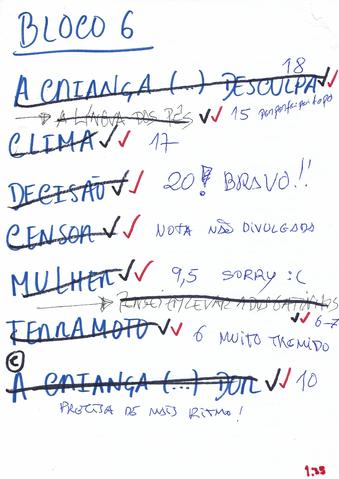 BLOCO 6
A CRIANÇA (...) DESCULPA 18
→ A LÍNGUA DOS PÉS 15
CLIMA 17
DECISÃO 20! BRAVO!!
CENSOR NOTA NÃO DIVULGADA
MULHER 9,5 SORRY :(
6-7
TERRAMOTO 6 MUITO TREMIDO
C
A CRIANÇA (...) DOR 10
PRECISA DE MAIS RITMO!
1.25